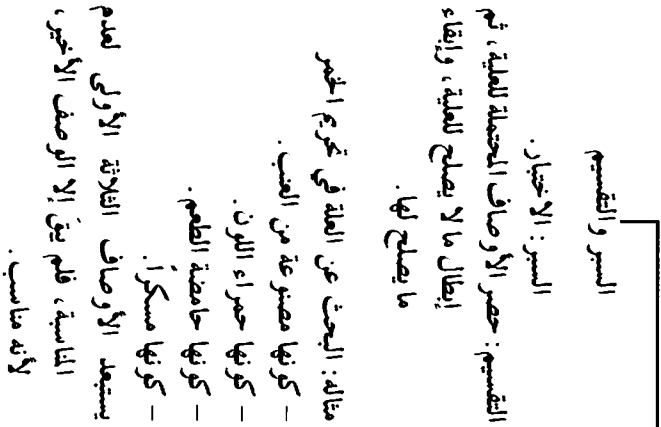 السبر والتقسيم
السبر: الاختبار.
التقسيم: حصر الأوصاف المحتملة للعلية، ثم
إبطال ما لا يصلح للعلية، وإبقاء
ما يصلح لها.
مثاله: البحث عن العلة في تحريم الخمر
– كونها مصنوعة من العنب.
– كونها حمراء اللون.
– كونها حامضة الطعم.
– كونها مسكراً.
يستبعد الأوصاف الثلاثة الأولى لعدم
المناسبة، فلم يبقَ إلا الوصف الأخير،
لأنه مناسب.